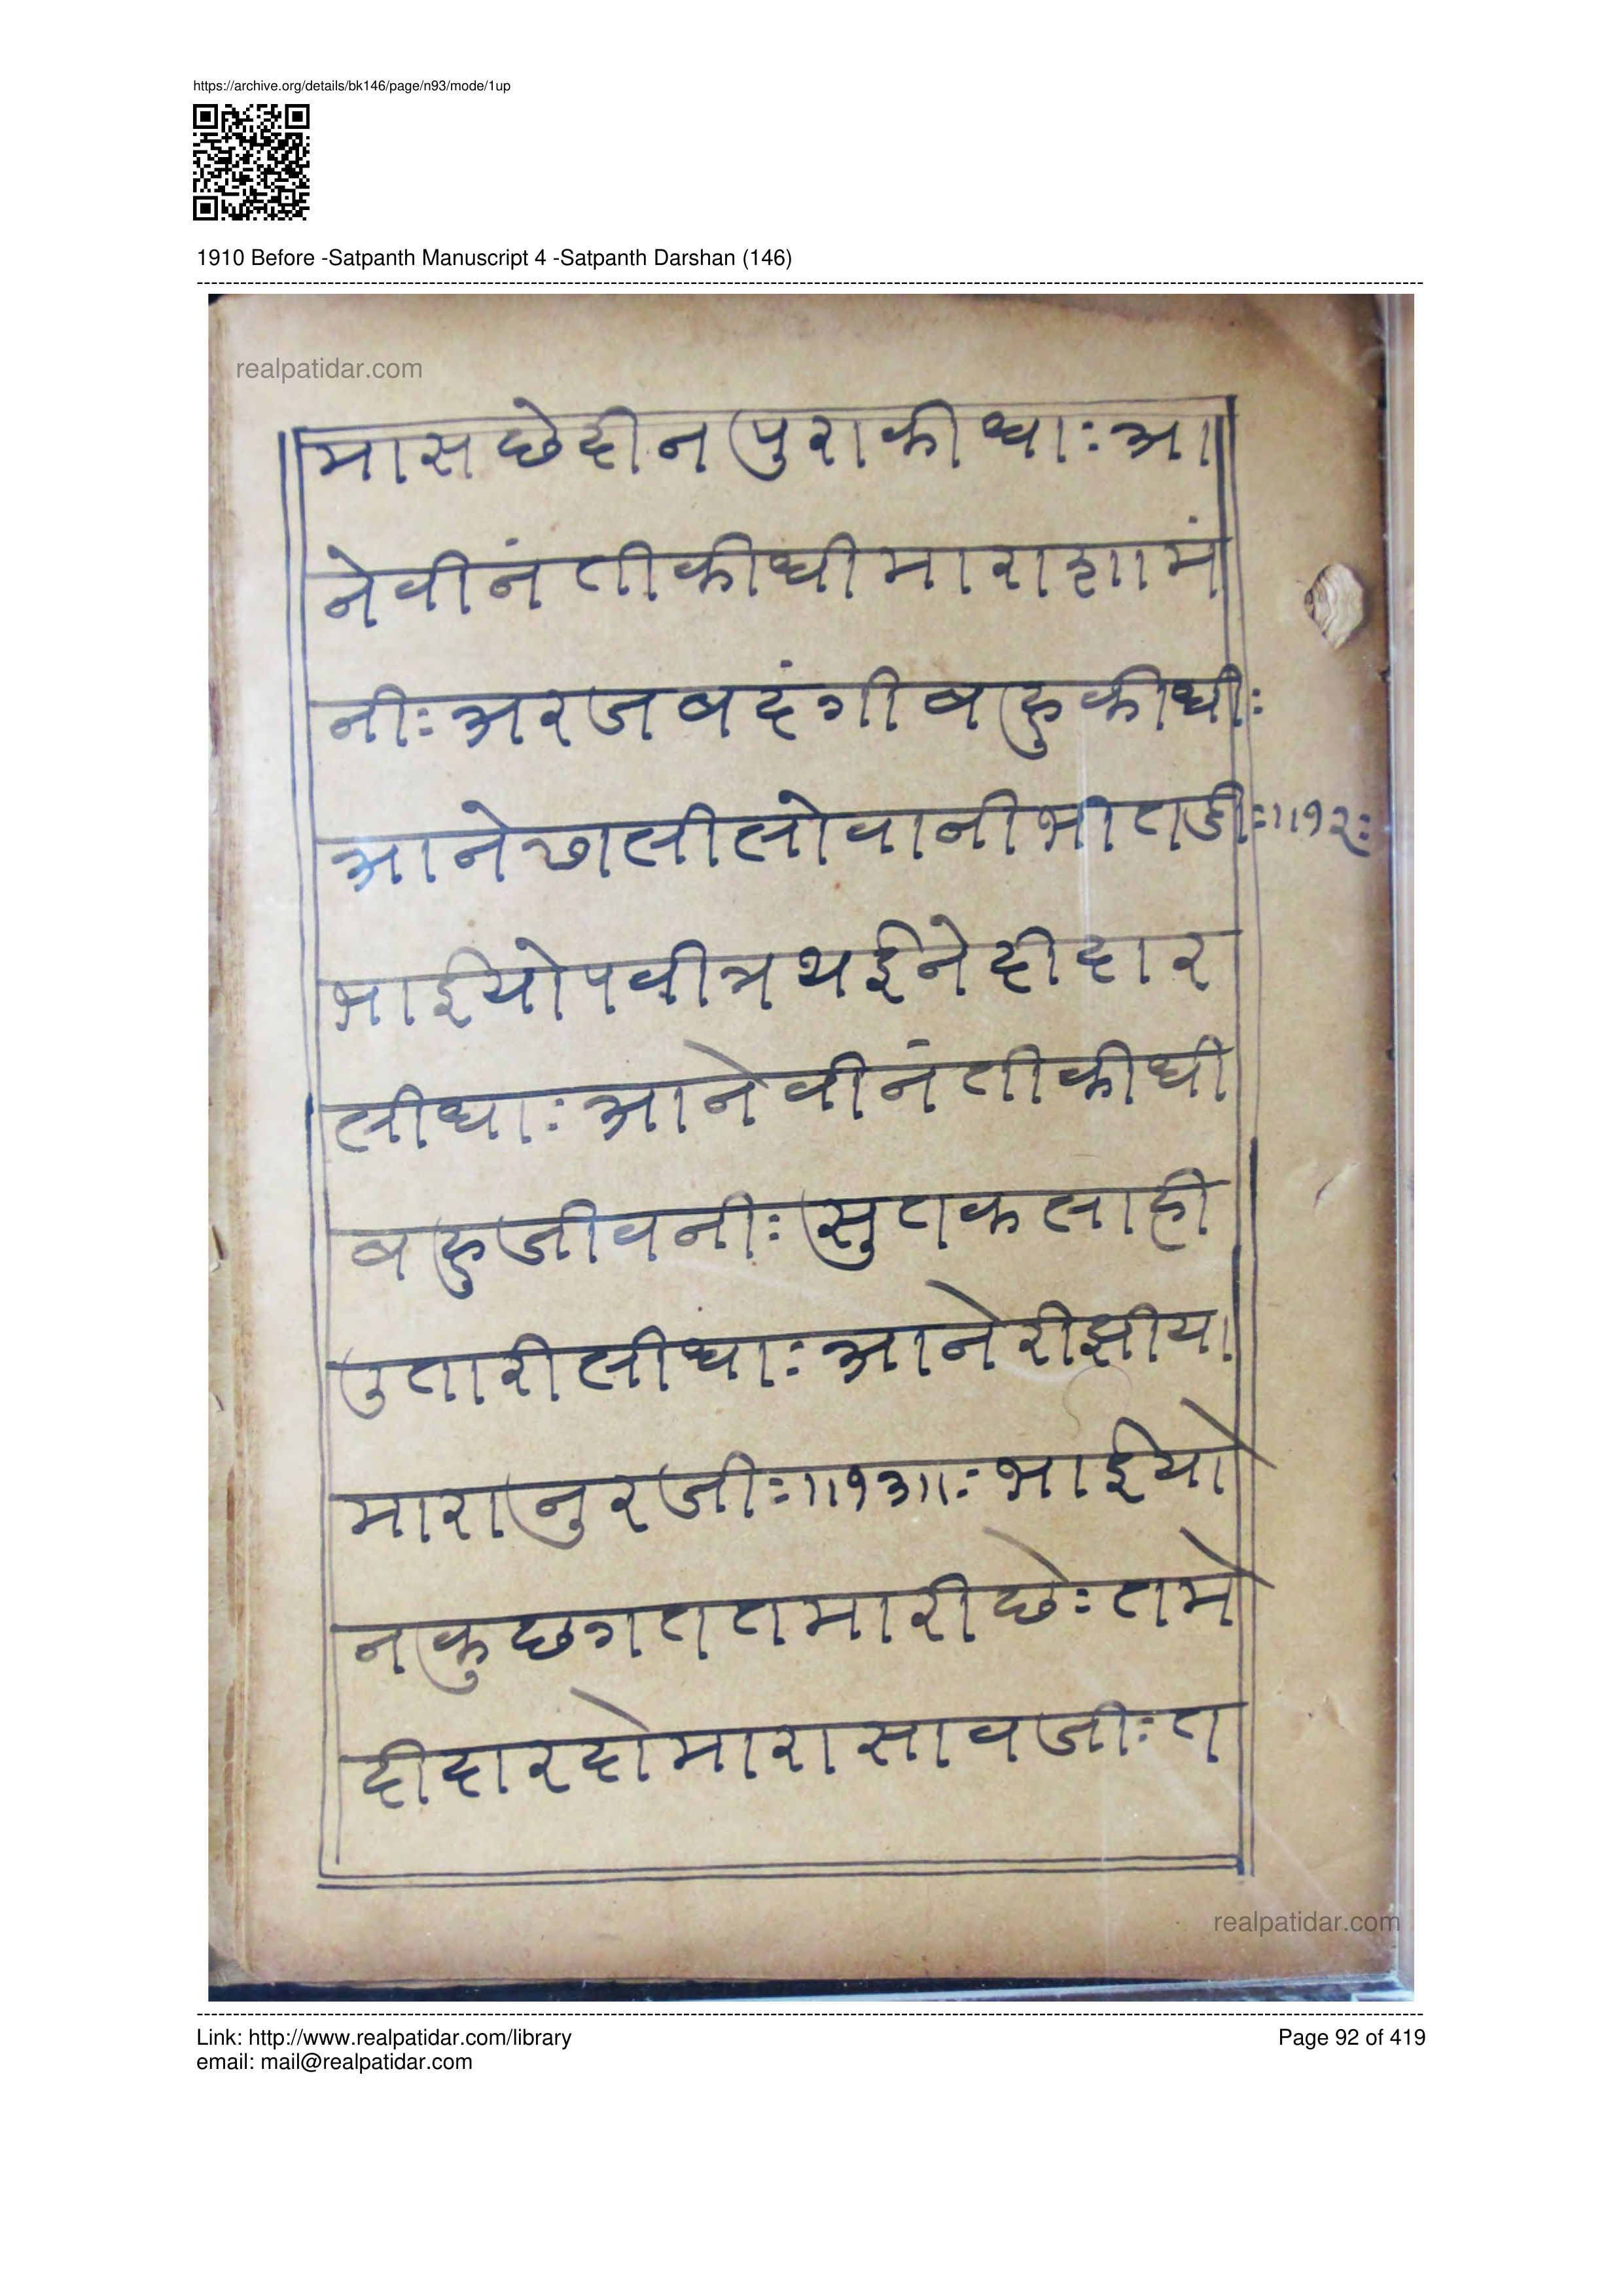 https://archive.org/details/bk146/page/n93/mode/1up
1910 Before -Satpanth Manuscript 4 -Satpanth Darshan (146)
realpatidar.com
मासछेदीनपुराकीधाःआ
नेवीनंतीकीधीमाराशामं
नीःअरजबदंगीबहुकीधीः
आनेछालीलोवानीभातडीः॥१२ः
भाईयोपवीत्रथईनेदीदार
लीधाःआनेवीनंतीकीधी
बहुजीवनीःसुतकलाही
उतारीलीधाःआनेरीझीया
मारानुरजीः॥१३॥ःभाईयो
नकुछगततमारीछेःतमे
दीदारदोमारासावजीःत
realpatidar.com
Link: http://www.realpatidar.com/library
email: mail@realpatidar.com
Page 92 of 419